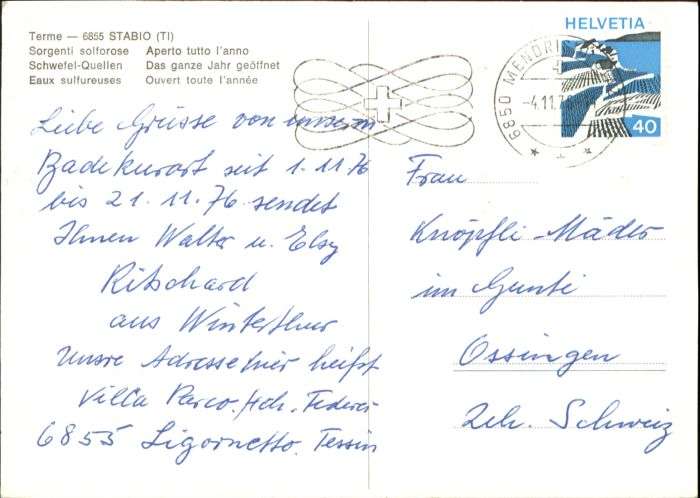 Terme — 6855 STABIO (TI)
Sorgenti solforose Aperto tutto l'anno
Schwefel-Quellen Das ganze Jahr geöffnet
Eaux sulfureuses Ouvert toute l'année
HELVETIA
40
6850 MENDRI
-4.11.7
Liebe Grüsse von unserm
Badekurort seit 1.11.76
bis 21.11.76 sendet
Ihnen Walter u. Elsy
Ritschard
aus Winterthur
Unsre Adresse hier heisst
Villa Parco.
6855 Ligornetto. Tessin
Frau
Knöpfli-Mäder
im Gunti
Ossingen
Zch. Schweiz